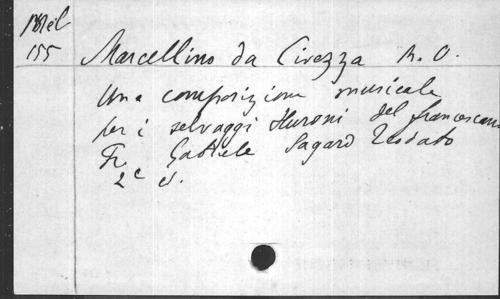 Mél
155
Marcellino da Civezza M. O.
Una composizione musicale
per i selvaggi Huroni del francescano
Fr. Gabriele Sagard Teodato
2e éd.